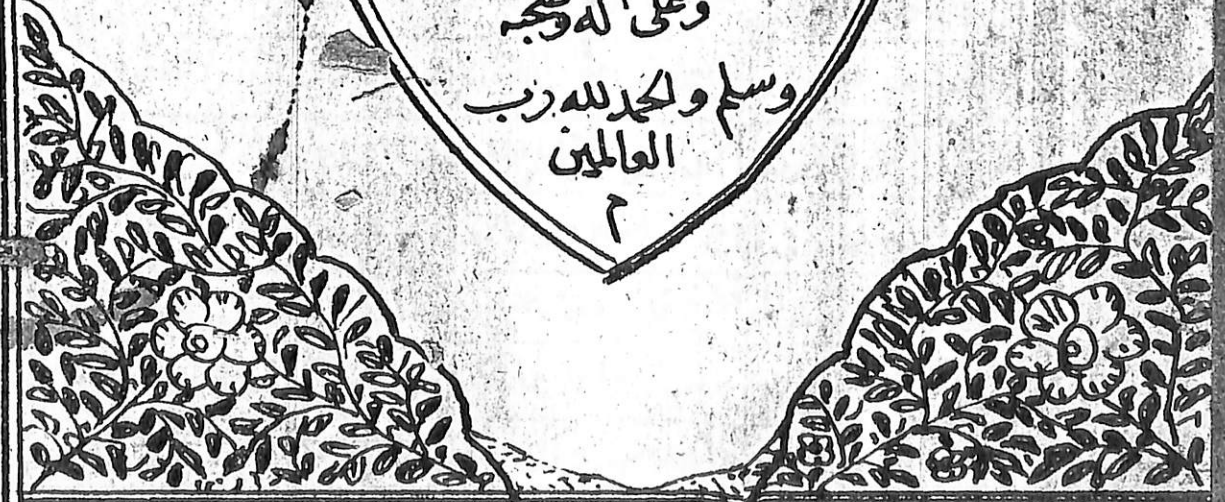 وعلى آله وصحبه
وسلم والحمد لله رب
العالمين
م